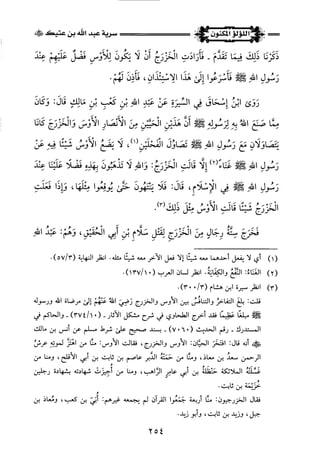 اللؤلؤ المكنون
سرية عبد الله بن عتيك ﷺ
ذَكَرْنَا ذَلِكَ فِيمَا تَقَدَّمَ - فَأَرَادَتِ الْخَزْرَجُ أَنْ لَا يَكُونَ لِلْأَوْسِ فَضْلٌ عَلَيْهِمْ عِنْدَ
رَسُولِ اللهِ ﷺ فَأَسْرَعُوا إِلَى هَذَا الِاسْتِئْذَانِ، فَأَذِنَ لَهُمْ.
رَوَى ابْنُ إِسْحَاقَ فِي السِّيرَةِ عَنْ عَبْدِ اللهِ بْنِ كَعْبِ بْنِ مَالِكٍ قَالَ: وَكَانَ
مِمَّا صَنَعَ اللهُ بِهِ لِرَسُولِهِ ﷺ أَنَّ هَذَيْنِ الْحَيَّيْنِ مِنَ الْأَنْصَارِ الْأَوْسَ وَالْخَزْرَجَ كَانَا
يَتَصَاوَلَانِ مَعَ رَسُولِ اللهِ ﷺ تَصَاوُلَ الْفَحْلَيْنِ(١)، لَا يَصْنَعُ الْأَوْسُ شَيْئًا فِيهِ عَنْ
رَسُولِ اللهِ ﷺ غَنَاءٌ(٢) إِلَّا قَالَتِ الْخَزْرَجُ: وَاللهِ لَا تَذْهَبُونَ بِهَذِهِ فَضْلًا عَلَيْنَا عِنْدَ
رَسُولِ اللهِ ﷺ فِي الْإِسْلَامِ، قَالَ: فَلَا يَنْتَهُونَ حَتَّى يُوقِعُوا مِثْلَهَا، وَإِذَا فَعَلَتِ
الْخَزْرَجُ شَيْئًا قَالَتِ الْأَوْسُ مِثْلَ ذَلِكَ(٣).
فَخَرَجَ سِتَّةُ رِجَالٍ مِنَ الْخَزْرَجِ لِقَتْلِ سَلَّامِ بْنِ أَبِي الْحُقَيْقِ، وَهُمْ: عَبْدُ اللهِ
(١) أي لا يفعل أحدهما معه شيئًا إلا فعل الآخر معه شيئًا مثله. انظر النهاية (٥٧/٣).
(٢) الغَنَاءُ: النَّفْعُ والكِفَايَةُ. انظر لسان العرب (١٣٧/١٠).
(٣) انظر سيرة ابن هشام (٣٠٠/٣).
قلت: بلغ التفاخرُ والتنافسُ بين الأوس والخزرج رَضِيَ اللهُ عَنْهُمْ إلى مرضاة الله ورسوله
ﷺ مبلغًا عَظِيمًا فقد أخرج الطحاوي في شرح مشكل الآثار - (٣٧٤/١٠) - والحاكم في
المستدرك - رقم الحديث (٧٠٦٠) - بسند صحيح على شرط مسلم عن أنس بن مالك
ﷺ أنه قال: افتَخَرَ الحيَّان: الأوس والخزرج، فقالت الأوس: منَّا من اهتَزَّ لموته عرشُ
الرحمن سعدُ بن معاذ، ومنَّا من حَمَتْهُ الدَّبر عاصم بن ثابت بن أبي الأقلح، ومنا من
غسَّلَتْهُ الملائكة حَنْظَلَةُ بن أبي عامر الرَّاهب، ومنا من أُجِيزَتْ شهادته بشهادة رجلين
خُزَيْمَةُ بن ثابت.
فقال الخزرجيون: منَّا أربعة جَمَعُوا القرآن لم يجمعه غيرهم: أُبيُّ بن كعب، ومُعَاذ بن
جبل، وزيد بن ثابت، وأبو زيد.
٢٥٤